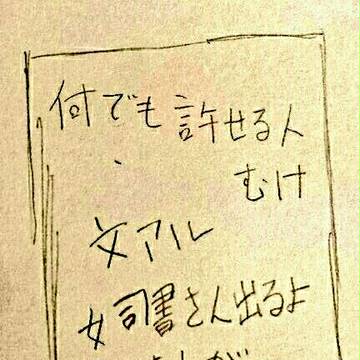 何でも許せる人
むけ
文アル
女司書さん出るよ